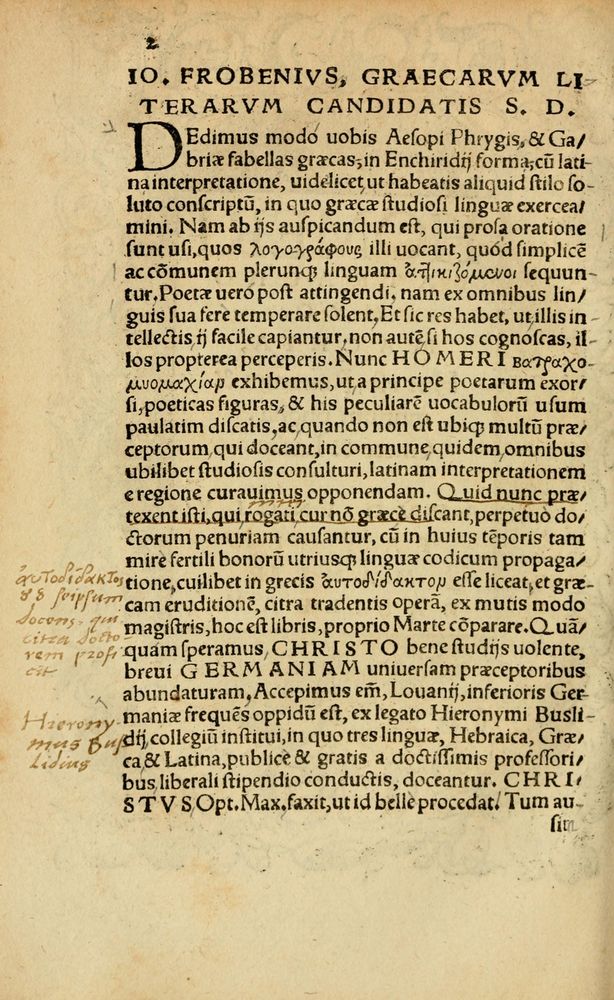 2
IO. FROBENIVS, GRAECARVM LI
TERARVM CANDIDATIS S. D.
DEdimus modo uobis Aesopi Phrygis, & Ga/
briæ fabellas græcas, in Enchiridij forma, cũ lati
na interpretatione, uidelicet ut habeatis aliquid stilo so/
luto conscriptũ, in quo græcæ studiosi linguæ exercea/
mini. Nam ab ijs auspicandum est, qui prosa oratione
sunt usi, quos λογογράφους illi uocant, quòd simplicẽ
ac cõmunem plerunq; linguam ἀττικιζόμενοι sequun-
tur. Poetæ uero post attingendi, nam ex omnibus lin/
guis sua fere temperare solent. Et sic res habet, ut illis in
tellectis, ij facile capiantur, non autẽ si hos cognoscas, il/
los propterea perceperis. Nunc HOMERI βατραχο-
μυομαχίαν exhibemus, ut a principe poetarum exor/
si, poeticas figuras, & his peculiarẽ uocabulorũ usum
paulatim discatis, ac, quando non est ubiq; multũ præ/
ceptorum, qui doceant, in commune quidem, omnibus
ubilibet studiosis consulturi, latinam interpretationem
e regione curauimus opponendam. Quid nunc præ/
texent isti, qui rogati, cur nõ græcè discant, perpetuo do/
ctorum penuriam causantur, cũ in huius tẽporis tam
mire fertili bonorũ utriusq; linguæ codicum propaga/
tione, cuilibet in grecis αυτοδίδακτον esse liceat, et græ/
cam eruditionẽ, citra tradentis operã, ex mutis modo
magistris, hoc est libris, proprio Marte cõparare. Quã/
quam speramus, CHRISTO bene studijs uolente,
breui GERMANIAM uniuersam præceptoribus
abundaturam. Accepimus em̃, Louanij, inferioris Ger
maniæ frequẽs oppidũ est, ex legato Hieronymi Busli-
dij, collegiũ institui, in quo tres linguæ, Hebraica, Græ/
ca, & Latina, publicè & gratis a doctissimis professori/
bus, liberali stipendio conductis, doceantur. CHRI/
STVS Opt. Max. faxit, ut id belle procedat. Tum au-
sim
αυτοδιδακτος
seipsum
docens, qui
citra docto
rem profi
cit
Hierony-
mus Bus
lidius